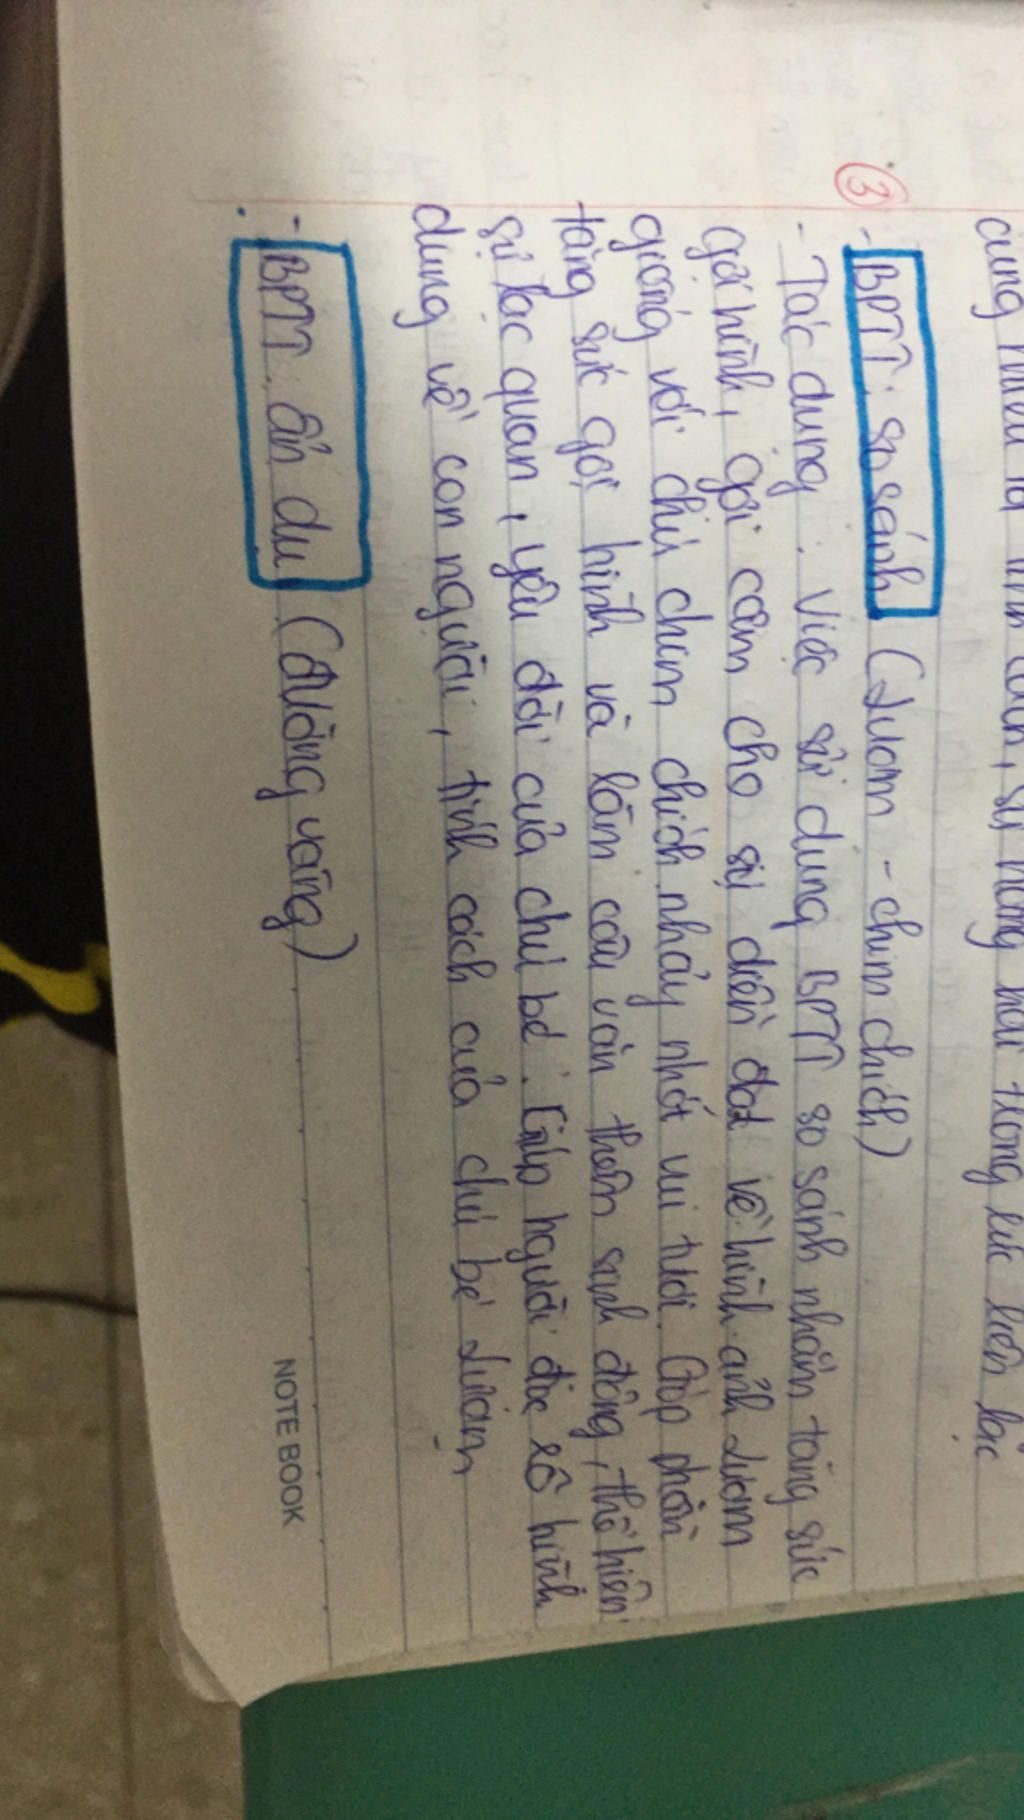 cũng
③ - BPTT: so sánh (Lượm - chim chích)
- Tác dụng: Việc sử dụng BPTT so sánh nhằm tăng sức
gợi hình, gợi cảm cho sự diễn đạt về hình ảnh Lượm
giống với chú chim chích nhảy nhót vui tươi. Góp phần
tăng sức gợi hình và làm câu văn thêm sinh động, thể hiện
sự lạc quan, yêu đời của chú bé. Giúp người đọc rõ hình
dung về con người, tính cách của chú bé Lượm
- BPTT: ẩn dụ (đường vàng)
NOTE BOOK